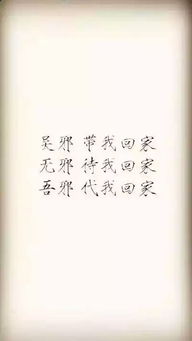 吴邪 带我回家
无邪 待我回家
吾邪 代我回家